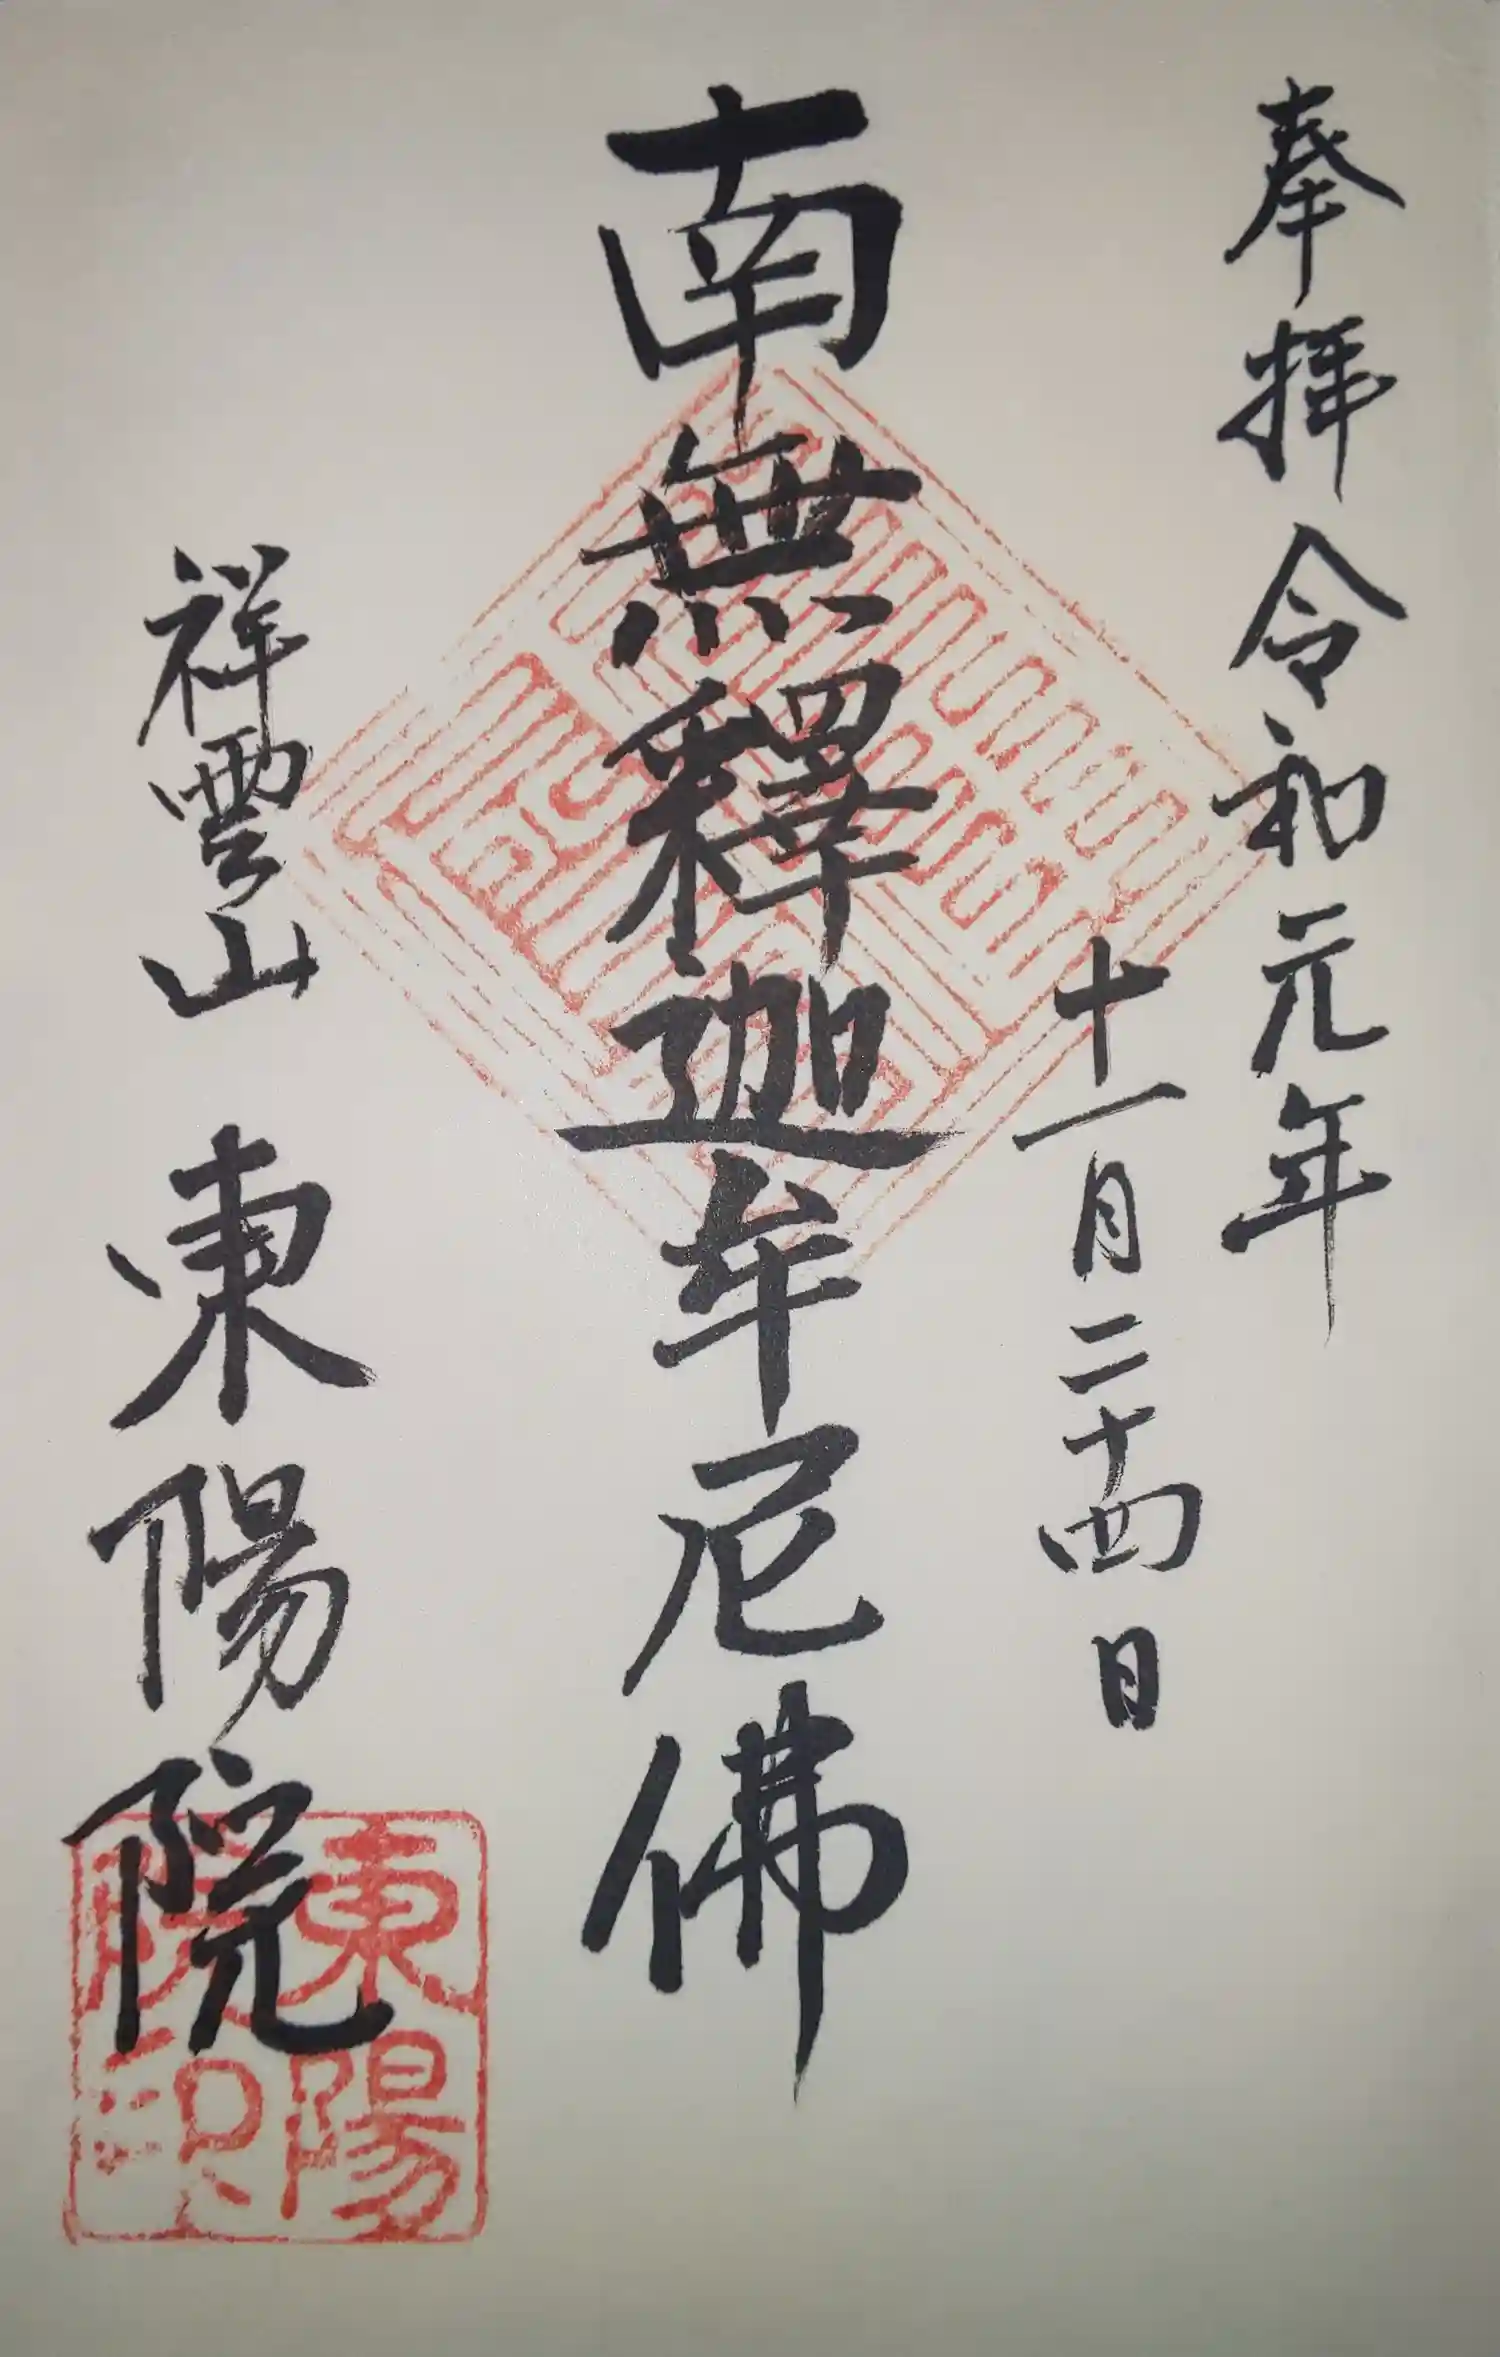 奉拝 令和元年
十一月二十四日
南無釋迦牟尼佛
祥雲山 東陽院
東陽院印